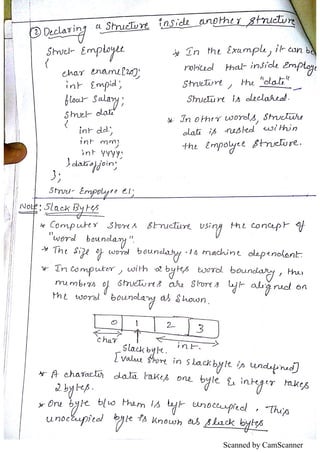 ② Declaring a Structure inside another structure
Struct Employee
{
char ename[20];
int Empid;
float Salary;
Struct date
{
int dd;
int mm;
int yyyy;
} dateofjoin;
};
Struct Empolyee e1;
* In the Example, it can be
noticed that inside Employe
Structure, the "date"
Structure is declared.
* In other words, Structure
date is nested within
the Empolyee Structure.
Note: Slack Bytes
* Computer Stores Structure using the concept of
"word boundary".
* The Size of word boundary is machine dependent.
* In computer, with 2 bytes word boundary, the
numbers of structures are Stores left aligned on
the word boundary as Shown.
0 1 2 3
char int.
Slack byte.
[Value Store in Slackbyte is undefined]
* A character data takes one byte & integer takes
2 bytes.
* One byte b/w them is left unoccupied. This
unoccupied byte is known as Slack bytes
Scanned by CamScanner